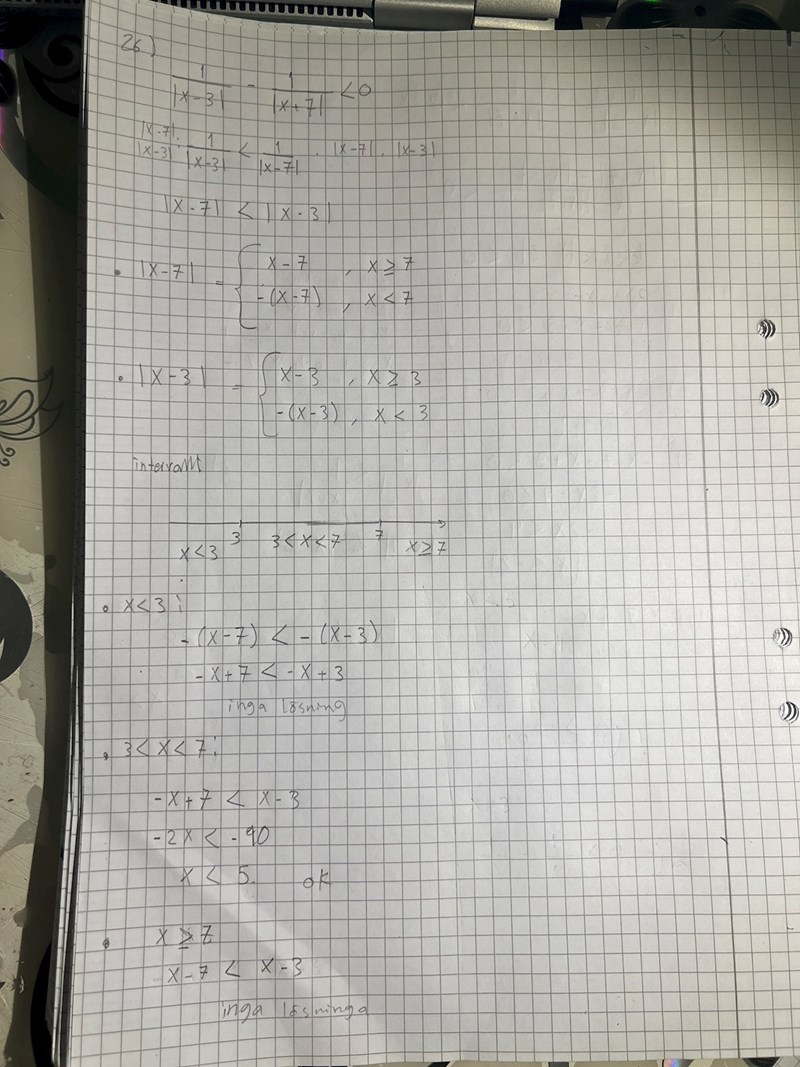 26)
1/|x-3| - 1/|x+7| < 0
|x-7| · |x-3| · 1/|x-3| < 1/|x-7| · |x-7| · |x-3|
|x-7| < |x-3|
• |x-7| = { x-7 , x ≥ 7
-(x-7) , x < 7
• |x-3| = { x-3 , x ≥ 3
-(x-3) , x < 3
intervall
x<3 3 3<x<7 7 x≥7
• x<3:
-(x-7) < -(x-3)
-x+7 < -x+3
inga lösning
• 3<x<7:
-x+7 < x-3
-2x < -10
x < 5. ok
• x ≥ 7
x-7 < x-3
inga lösninga